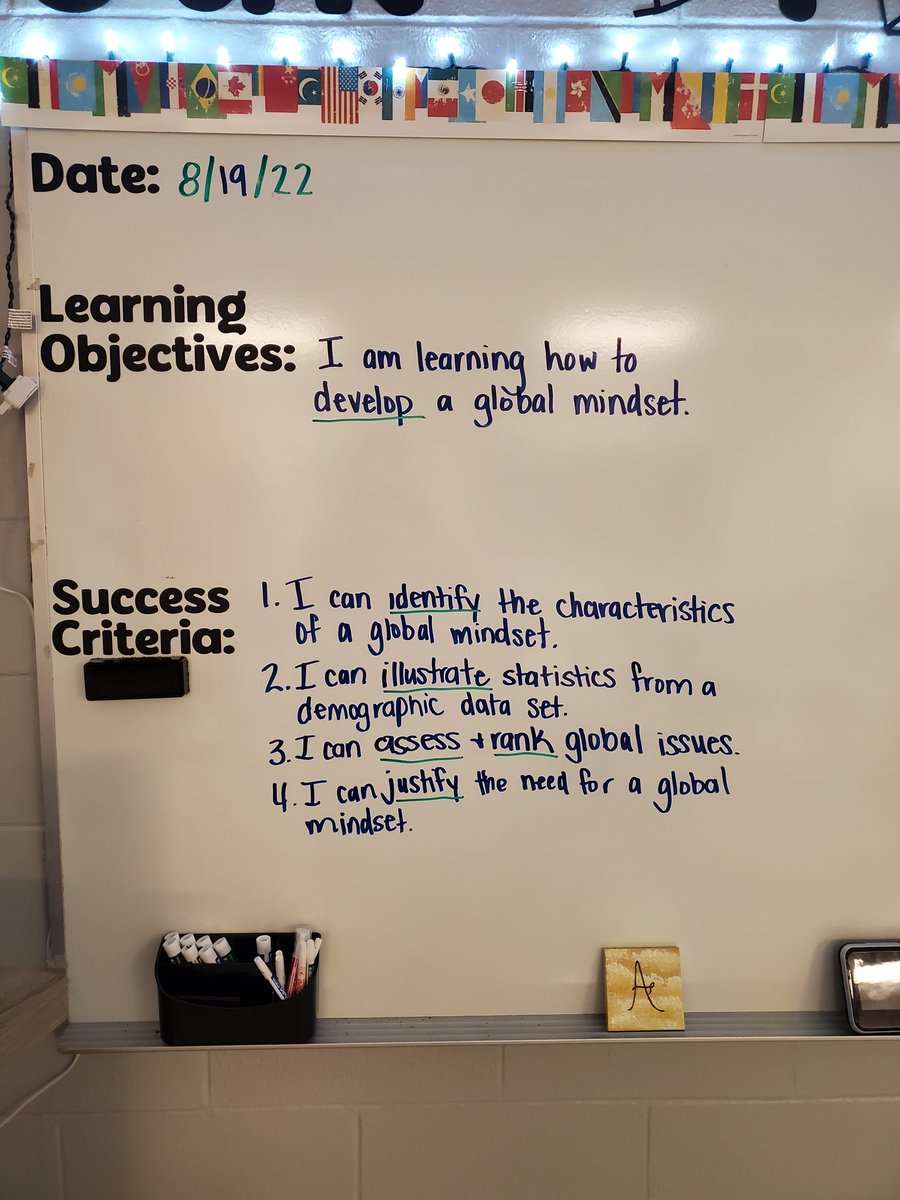 Date: 8/19/22
Learning
Objectives: I am learning how to
develop a global mindset.
Success
Criteria:
1. I can identify the characteristics
of a global mindset.
2. I can illustrate statistics from a
demographic data set.
3. I can assess + rank global issues.
4. I can justify the need for a global
mindset.